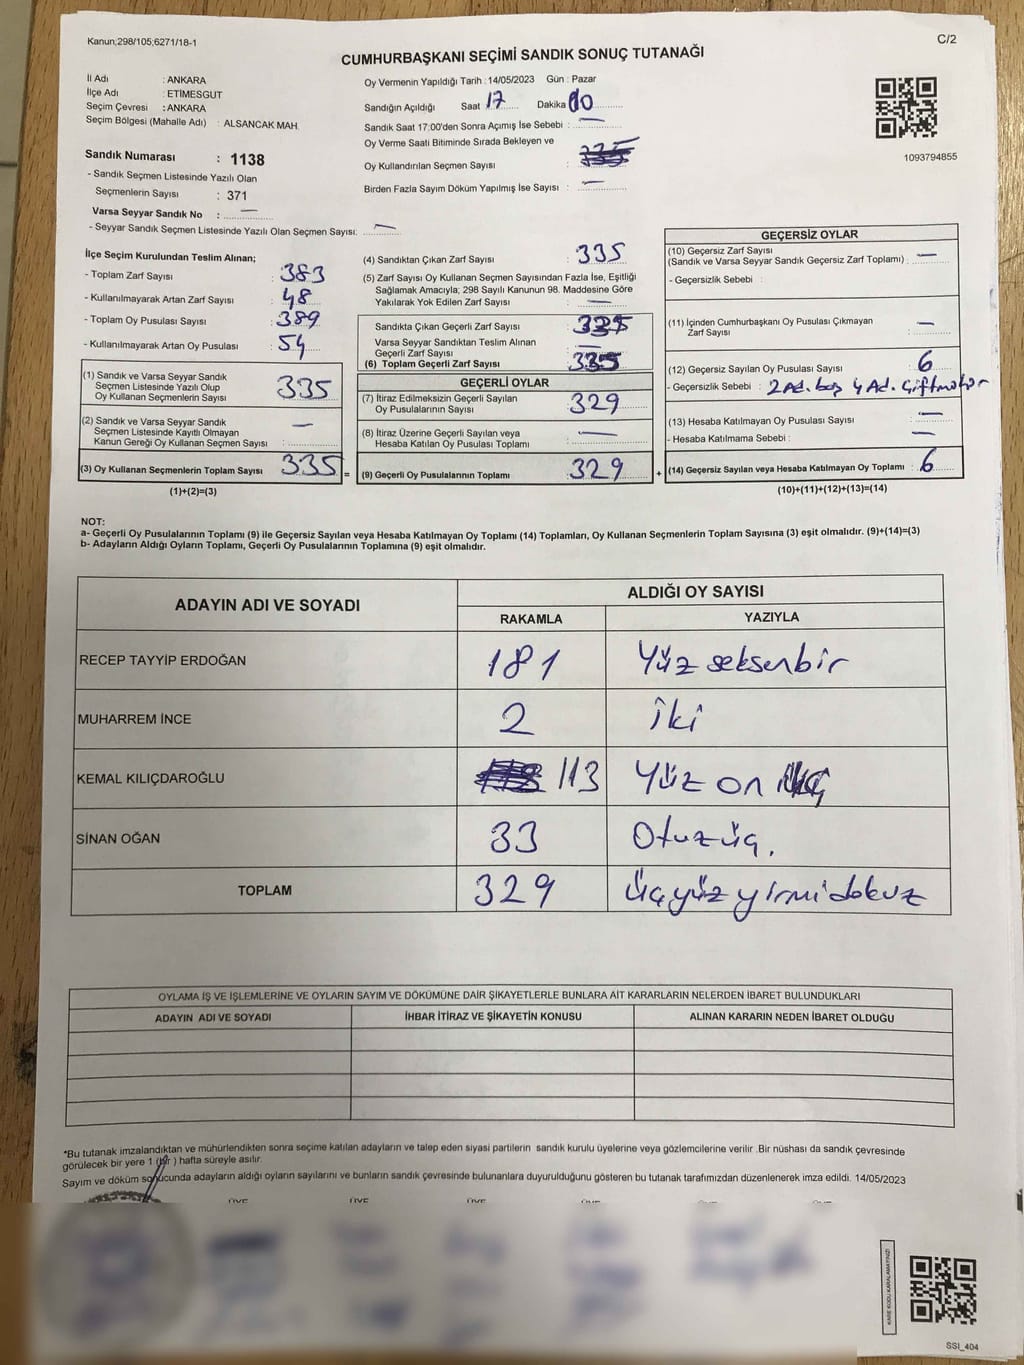 Kanun;298/105;6271/18-1
C/2
CUMHURBAŞKANI SEÇİMİ SANDIK SONUÇ TUTANAĞI
İl Adı : ANKARA
İlçe Adı : ETİMESGUT
Seçim Çevresi : ANKARA
Seçim Bölgesi (Mahalle Adı) : ALSANCAK MAH.
Sandık Numarası : 1138
- Sandık Seçmen Listesinde Yazılı Olan
Seçmenlerin Sayısı : 371
Varsa Seyyar Sandık No : —
- Seyyar Sandık Seçmen Listesinde Yazılı Olan Seçmen Sayısı: —
Oy Vermenin Yapıldığı Tarih : 14/05/2023 Gün : Pazar
Sandığın Açıldığı Saat 17 Dakika
Sandık Saat 17:00'den Sonra Açımış İse Sebebi : —
Oy Verme Saati Bitiminde Sırada Bekleyen ve
Oy Kullandırılan Seçmen Sayısı :
Birden Fazla Sayım Döküm Yapılmış İse Sayısı : —
1093794855
İlçe Seçim Kurulundan Teslim Alınan;
- Toplam Zarf Sayısı : 383
- Kullanılmayarak Artan Zarf Sayısı : 48
- Toplam Oy Pusulası Sayısı : 389
- Kullanılmayarak Artan Oy Pusulası : 54
(1) Sandık ve Varsa Seyyar Sandık
Seçmen Listesinde Yazılı Olup
Oy Kullanan Seçmenlerin Sayısı : 335
(2) Sandık ve Varsa Seyyar Sandık
Seçmen Listesinde Kayıtlı Olmayan
Kanun Gereği Oy Kullanan Seçmen Sayısı : —
(3) Oy Kullanan Seçmenlerin Toplam Sayısı : 335 =
(1)+(2)=(3)
(4) Sandıktan Çıkan Zarf Sayısı : 335
(5) Zarf Sayısı Oy Kullanan Seçmen Sayısından Fazla İse, Eşitliği
Sağlamak Amacıyla; 298 Sayılı Kanunun 98. Maddesine Göre
Yakılarak Yok Edilen Zarf Sayısı : —
Sandıkta Çıkan Geçerli Zarf Sayısı : 335
Varsa Seyyar Sandıktan Teslim Alınan
Geçerli Zarf Sayısı : —
(6) Toplam Geçerli Zarf Sayısı : 335
GEÇERLİ OYLAR
(7) İtiraz Edilmeksizin Geçerli Sayılan
Oy Pusulalarının Sayısı : 329
(8) İtiraz Üzerine Geçerli Sayılan veya
Hesaba Katılan Oy Pusulası Toplamı : —
(9) Geçerli Oy Pusulalarının Toplamı : 329 +
GEÇERSİZ OYLAR
(10) Geçersiz Zarf Sayısı
(Sandık ve Varsa Seyyar Sandık Geçersiz Zarf Toplamı) : —
- Geçersizlik Sebebi :
(11) İçinden Cumhurbaşkanı Oy Pusulası Çıkmayan
Zarf Sayısı : —
(12) Geçersiz Sayılan Oy Pusulası Sayısı : 6
- Geçersizlik Sebebi : 2 Ad. boş 4 Ad. Çiftmühür
(13) Hesaba Katılmayan Oy Pusulası Sayısı : —
- Hesaba Katılmama Sebebi : —
(14) Geçersiz Sayılan veya Hesaba Katılmayan Oy Toplamı : 6
(10)+(11)+(12)+(13)=(14)
NOT:
a- Geçerli Oy Pusulalarının Toplamı (9) ile Geçersiz Sayılan veya Hesaba Katılmayan Oy Toplamı (14) Toplamları, Oy Kullanan Seçmenlerin Toplam Sayısına (3) eşit olmalıdır. (9)+(14)=(3)
b- Adayların Aldığı Oyların Toplamı, Geçerli Oy Pusulalarının Toplamına (9) eşit olmalıdır.
ADAYIN ADI VE SOYADI
ALDIĞI OY SAYISI
RAKAMLA YAZIYLA
RECEP TAYYİP ERDOĞAN 181 Yüz seksenbir
MUHARREM İNCE 2 İki
KEMAL KILIÇDAROĞLU 113 Yüz on üç
SİNAN OĞAN 33 Otuzüç.
TOPLAM 329 Üçyüz yirmidokuz
OYLAMA İŞ VE İŞLEMLERİNE VE OYLARIN SAYIM VE DÖKÜMÜNE DAİR ŞİKAYETLERLE BUNLARA AİT KARARLARIN NELERDEN İBARET BULUNDUKLARI
ADAYIN ADI VE SOYADI İHBAR İTİRAZ VE ŞİKAYETİN KONUSU ALINAN KARARIN NEDEN İBARET OLDUĞU
*Bu tutanak imzalandıktan ve mühürlendikten sonra seçime katılan adayların ve talep eden siyasi partilerin sandık kurulu üyelerine veya gözlemcilerine verilir .Bir nüshası da sandık çevresinde
görülecek bir yere 1 (bir) hafta süreyle asılır.
Sayım ve döküm sonucunda adayların aldığı oyların sayılarını ve bunların sandık çevresinde bulunanlara duyurulduğunu gösteren bu tutanak tarafımızdan düzenlenerek imza edildi. 14/05/2023
ÜYE ÜYE ÜYE
KARE KODU KARALAMAYINIZ!
SSI_404